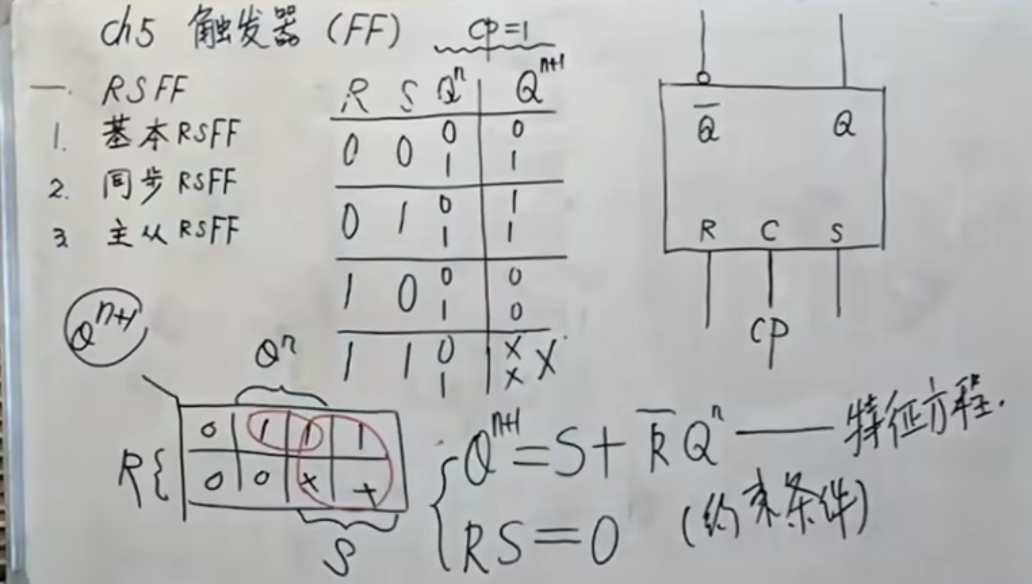 ch5 触发器 (FF)
CP=1
一. RSFF
1. 基本RSFF
2. 同步RSFF
3. 主从RSFF
R S Qⁿ Qⁿ⁺¹
0 0 0 0
1 1
0 1 0 1
1 1
1 0 0 0
1 0
1 1 0 × ×
1 ×
Q̅ Q
R C S
CP
Qⁿ⁺¹
Qⁿ
0 1 1 1
R{ 0 0 × ×
S
Qⁿ⁺¹=S+R̅Qⁿ —— 特征方程.
RS=0 (约束条件)